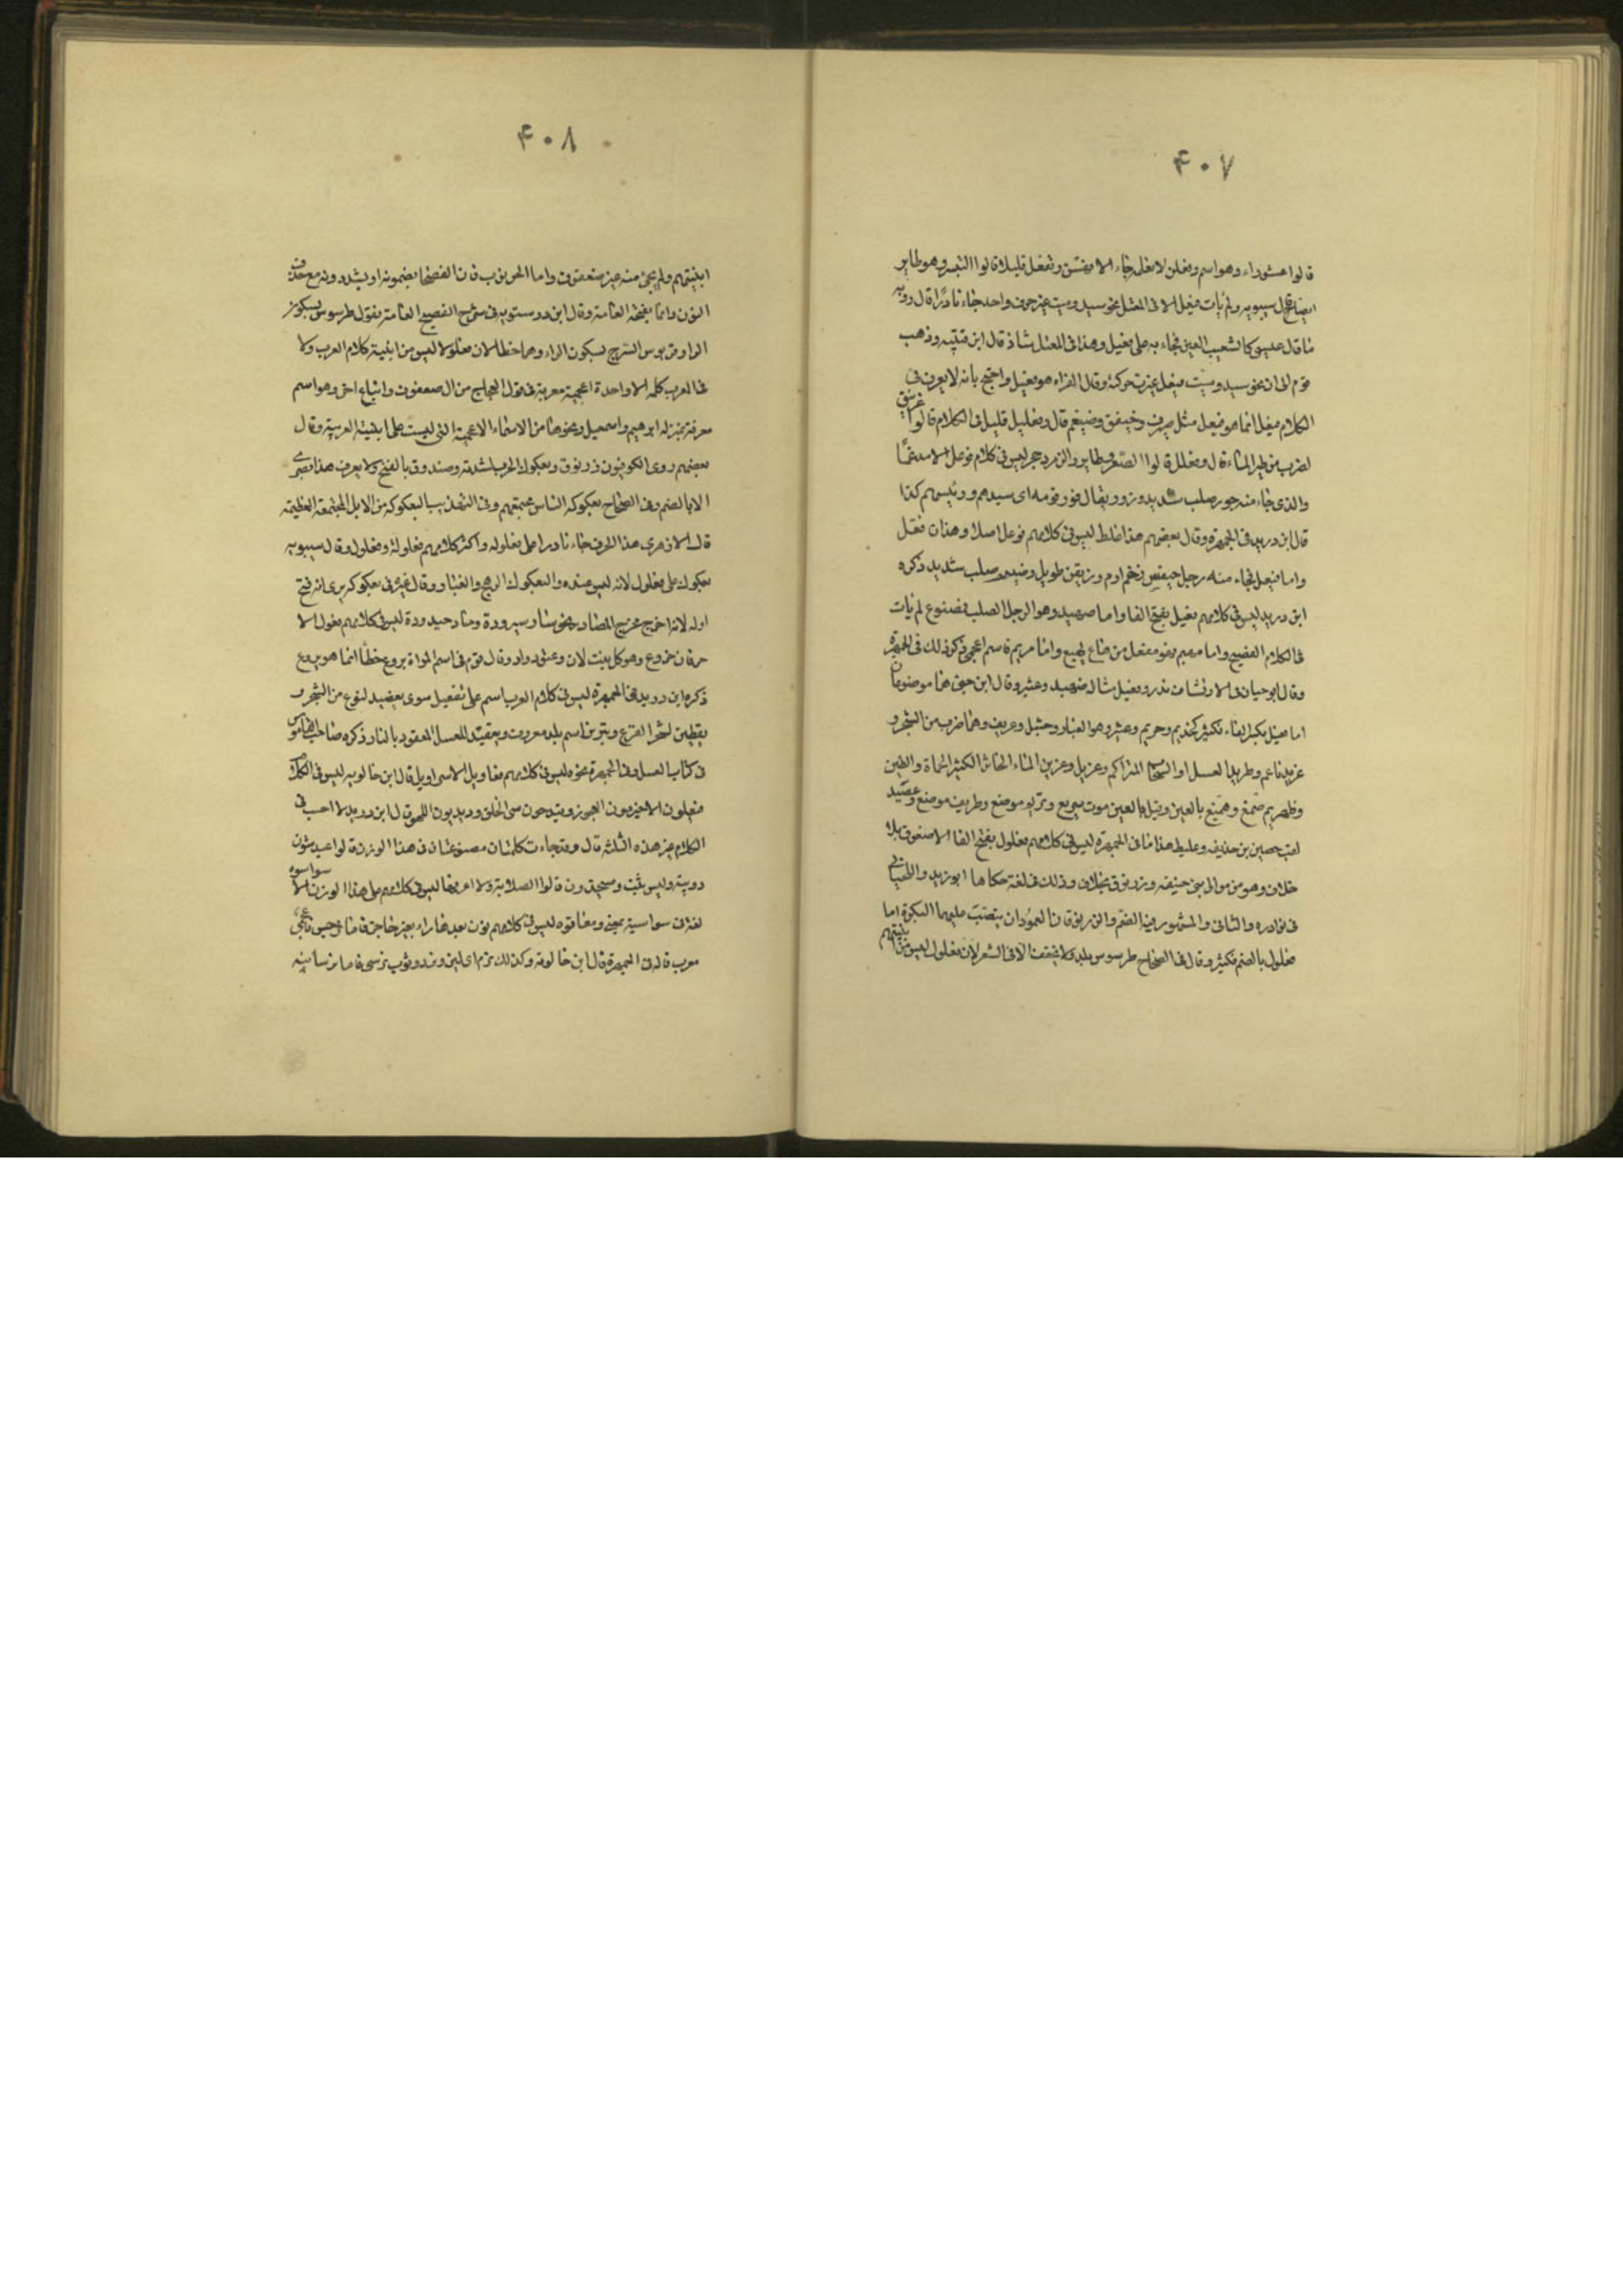 ۴۰۷
قالوا عشوراء وهو اسم وفعلن لا نعلمه جاء الا فرسن وتفعل قليلا قالوا التبشر وهو طاير
ايضا قال سيبويه ولم يأت فيعل الا في المعتل نحو سيد وميت غير حرف واحد جاء نادرا قال رؤبه
ما بال عيني كالشعيب العين فجاء به على فيعل وهذا في المعتل شاذ قال ابن قتيبه وذهب
قوم الى ان نحو سيد وميت فيعل غيرت حركته وقال الفراء هو فعيل واحتج بانه لا يعرف في
الكلام فيعل انما هو فيعل مثل صيرف وخيفق وضيغم قال وفعليل قليل في الكلام قالوا غرنيق
لضرب من طير الماء قال وفعلل قالوا الصعرر طاير والزمردجر ليس في كلام فوعل الا مدغما
والذي جاء منه جور صلب شديد وزور يقال زور قومه اى سيدهم ورئيسهم كذا
قال ابن دريد في الجمهرة وقال بعضهم هذا غلط ليس في كلامهم فوعل اصلا وهذان فعل
واما فيعل فجاء منه رجل حيفس ضخم ادم وزيفن طويل وصيهم صلب شديد ذكره
ابن دريد ليس في كلامهم فعيل بفتح الفا واما صهيد وهو الرجل الصلب فمصنوع لم يأت
في الكلام الفصيح واما مهيع فهو مفعل من هاع يهيع واما مريم فاسم اعجمي ذكر ذلك في الجمهرة
وقال ابو حيان في الارتشاف ندر وفعيل مثال ضهيد وعثير وقال ابن جني هما موضوعان
اما فعيل بكسر الفاء فكثير كحذيم وحريم وعثير وهو الغبار وحثيل وغريف وهما ضرب من الشجر و
غريد ناعم وطريم العسل او السحاب المتراكم وغريل وغرين الماء الخاثر الكثير الحماة والطين
لقب حصين بن حذيف وعليط هذا ما في الجمهرة ليس في كلامهم فعلول بفتح الفا الا صعفوق بلا
خلاف وهو من موالى بني حنيفه وزرنوق بخلاف وذلك في لغة حكاها ابو زيد واللحياني
في نوادره والثاني والمشهور فيه الضم والزرنوقان العمودان ينصب عليهما البكرة اما
فعلول بالضم فكثير وقال في الصحاح طرسوس بلد ولا يخفف الا في الشعر لان فعلول ليس من ابنيتهم
۴۰۸
ابنيتهم ولم يجئ منه غير صعفوق واما الخرنوب فان الفصحا يضمونه او يشددونه مع حذف
النون وانما يفتحه العامة وقال ابن درستويه في شرح الفصيح العامة تقول طرسوس بسكون
الراء وقربوس السرج بسكون الراء وهما خطا لان فعلولا ليس من ابنية كلام العرب ولا
في العرب كلمه الا واحدة اعجمية معربة في قول العجاج من ال صعفوق واتباع اخر وهو اسم
معرفة بمنزله ابراهيم واسمعيل ونحوها من الاسماء الاعجمية التي ليست على ابنية العربية وقال
بعضهم روى الكوفيون زرنوق وبعكوك الحرب لشدته وصندوق بالفتح ولا يعرف هذا بصرى
الا بالضم وفي الصحاح بعكوكه الناس مجتمعهم وفي التهذيب البعكوكه من الابل المجتمعة العظيمة
قال الازهرى هذا الحرف جاء نادرا على فعلوله واكثر كلامهم فعلوله وفعلول وقال سيبويه
بعكوك على فعلول لانه ليس عنده والبعكوك الرهج والغبار وقال غيره في بعكوكه يرى انه فتح
اوله لانه اخرج مخرج المصادر نحو سار سيرورة وحاد حيدودة ليس في كلامهم فعول الا
حرفان خروع وهو كل نبت لان وعتود واد وقال قوم في اسم المراة بروع خطأ انما هو بروع
ذكره ابن دريد في الجمهرة ليس في كلام العرب اسم على تفعيل سوى يعضيد لنوع من الشجر و
يقطين لشجر القرع ويبرين اسم بلد معروف ويعقيد للعسل المعقود بالنار ذكره صاحب القاموس
في كتاب العسل وفي الجمهرة نحوه ليس في كلامهم فعاويل الا سراويل قال ابن خالويه ليس في الكلام
الكلام غير هذه الثلثه قال وقد جاءت كلمتان مصنوعتان في هذا الوزن قالوا عيدشون
دويبة وليس بثبت وصيخدون قالوا الصلابة ولا اعرفها ليس في كلامهم على هذا الوزن الا سواسوه
لغة في سواسية بمعنى ومقاتوه ليس في كلامهم نون بعدها راء بغير حاجز فاما نرجس فاعجمي
معرب قاله في الجمهرة قال ابن خالويه وكذلك نرم اى لين ونرد وثوب نرسي فاما نرسيانه